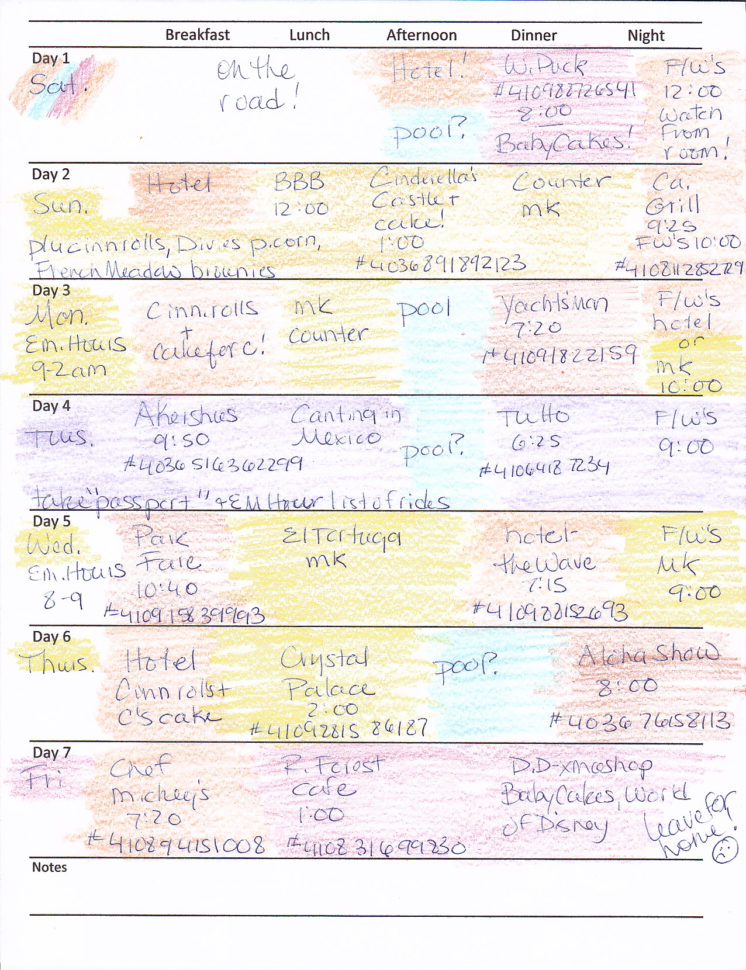 Breakfast Lunch Afternoon Dinner Night
Day 1
Sat.
on the
road!
Hotel!
pool?
W. Puck
#410982726541
8:00
BabyCakes!
F/W's
12:00
Watch
From
room!
Day 2
Sun.
Hotel
BBB
12:00
Cinderella's
Castle +
cake!
1:00
#4036891892123
Counter
MK
Ca.
Grill
9:25
FW's 10:00
#410811285279
plu cinn rolls, Divies p.corn,
French Meadow brownies
Day 3
Mon.
Em. Hours
9-2am
Cinn. rolls
+
cake for C!
MK
counter
pool
Yachtsman
7:20
#41091822159
F/W's
hotel
or
MK
10:00
Day 4
Tues.
Akershus
9:50
#403651636 2299
Cantina in
Mexico
pool?
Tutto
6:25
#4106418 7234
F/W's
9:00
take "passport" + EM Hour list of rides
Day 5
Wed.
Em. Hours
8-9
Park
Fare
10:40
#4109158399993
El Tortuga
MK
hotel-
the Wave
7:15
#4109882152693
F/W's
MK
9:00
Day 6
Thurs.
Hotel
Cinn rolls +
C's cake
Crystal
Palace
2:00
#41092815 86187
pool?
Aloha Show
8:00
#4036 76158113
Day 7
Fri
Chef
Mickey's
7:20
#410894151008
R. Forest
cafe
1:00
#4108 31699230
D.D-xmas shop
BabyCakes, World
of Disney
leave for
home!
Notes